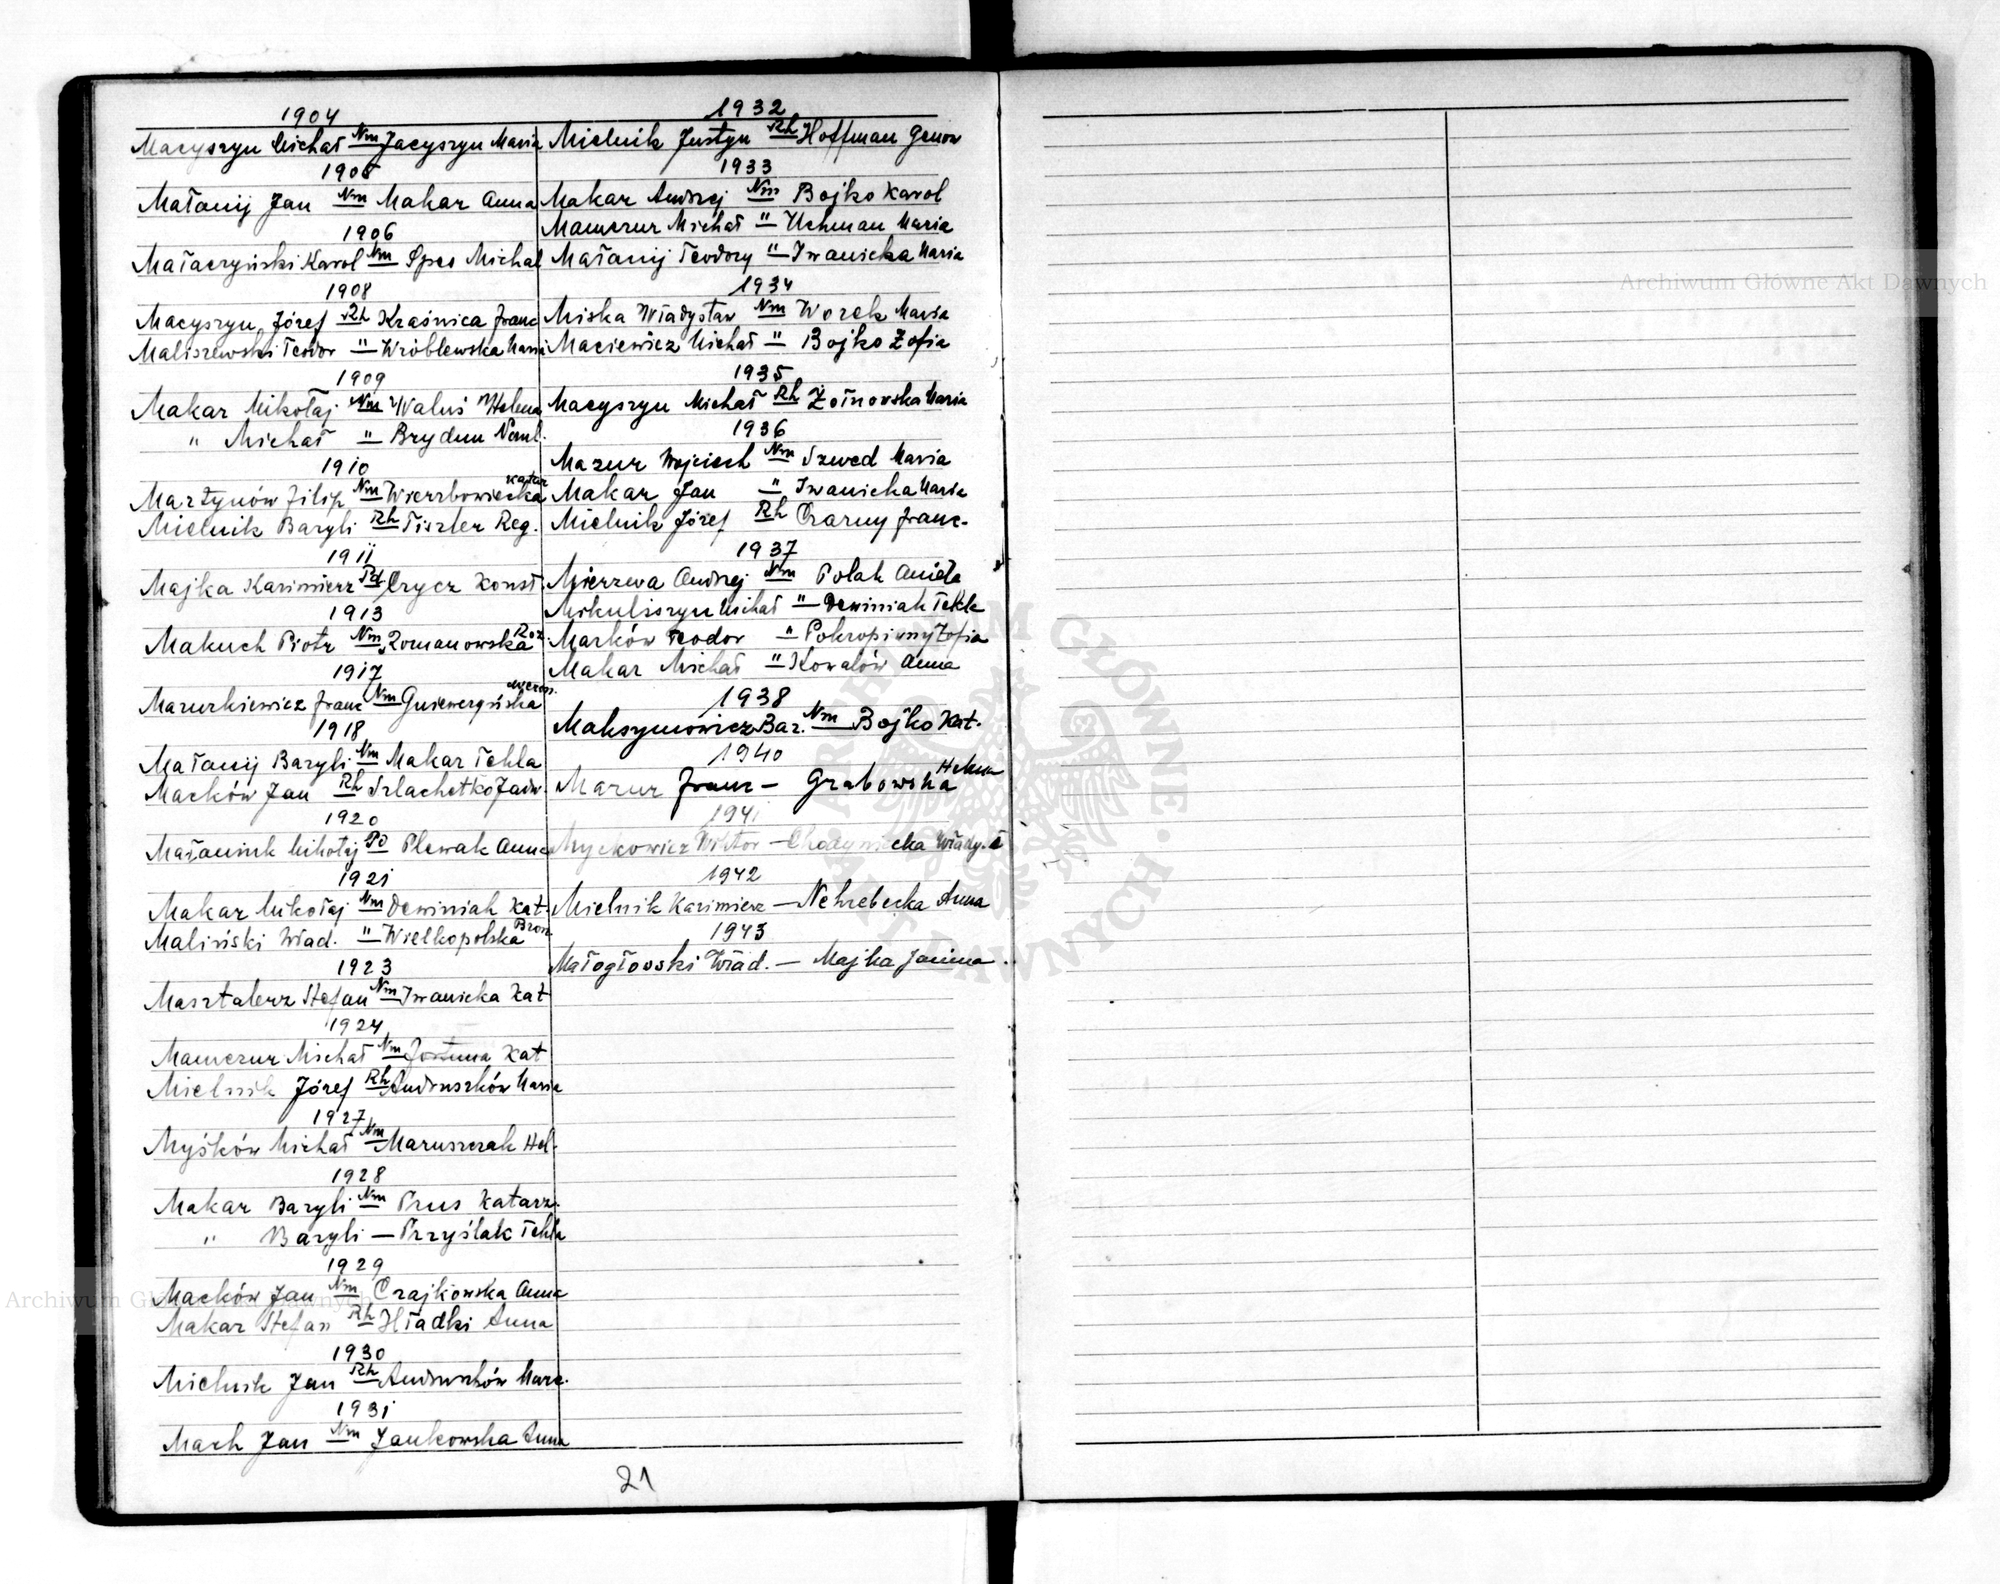 1904
Macyszyn Michał Nm Jacyszyn Maria
1905
Małanij Jan Nm Makar Anna
1906
Małaczyński Karol Nm Spes Michal
1908
Macyszyn Józef Rh Kraśnica Franc
Maliszewski Teodor " Wróblewska Maria
1909
Makar Mikołaj Nm Waluś Helena
" Michał " Brydun
1910
Martynów Filip Nm Wierzbowiecka Katar
Mielnik Bazyli Rh Tiszler Reg.
1911
Majka Kazimierz Pd Czycz Konst.
1913
Makuch Piotr Nm Romanowska Roz.
1917
Mazurkiewicz Franc Nm
1918
Małanij Bazyli Nm Makar Tekla
Macków Jan Rh Szlachetko Jadw.
1920
Małaniuk Mikołaj Pd Plewak Anna
1921
Makar Mikołaj Nm Dewiniak Kat.
Maliński Wład. " Wielkopolska Bron.
1923
Masztalerz Stefan Nm Iwanicka Kat
1924
Mamczur Michał Nm Fortuna Kat
Mielnik Józef Rh Andruszków Maria
1927
Myśków Michał Nm Maruszczak Hel.
1928
Makar Bazyli Nm Prus Katarz.
" Bazyli — Przyślak Tekla
1929
Macków Jan Nm Czajkowska Anna
Makar Stefan Rh Hładki Anna
1930
Mielnik Jan Rh Andruszków Mare.
1931
Mach Jan Nm Jankowska Anna
1932
Mielnik Justyn Rh Hoffman Genow
1933
Makar Andrzej Nm Bojko Karol
Mamczur Michał " Uchman Maria
Małanij Teodozy " Iwanicka Maria
1934
Miska Władysław Nm Worek Maria
Maciewicz Michał " Bojko Zofia
1935
Macyszyn Michał Rh Żołnowska Maria
1936
Mazur Wojciech Nm Szwed Maria
Makar Jan " Iwanicka Maria
Mielnik Józef Rh Czarny Franc.
1937
Mierzwa Andrzej Nm Polak Aniela
Mikuliszyn Michał " Dewiniak Tekla
Marków Teodor " Pokropivnyj Zofia
Makar Michał " Kowalów Anna
1938
Maksymowicz Baz. Nm Bojko Kat.
1940
Mazur Franc — Grabowska Helena
1941
Myckowicz Wiktor — Chodywicka Władysł
1942
Mielnik Kazimierz — Nehrebecka Anna
1943
Małogłowski Wład. — Majka Janina
21
Archiwum Główne Akt Dawnych
Archiwum Główne Akt Dawnych
ARCHIWUM GŁÓWNE AKT DAWNYCH